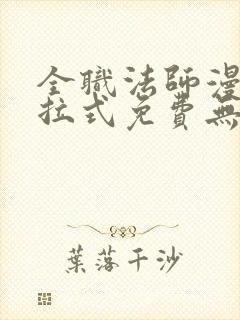 全職法師漫
拉式免費無
葉落千沙